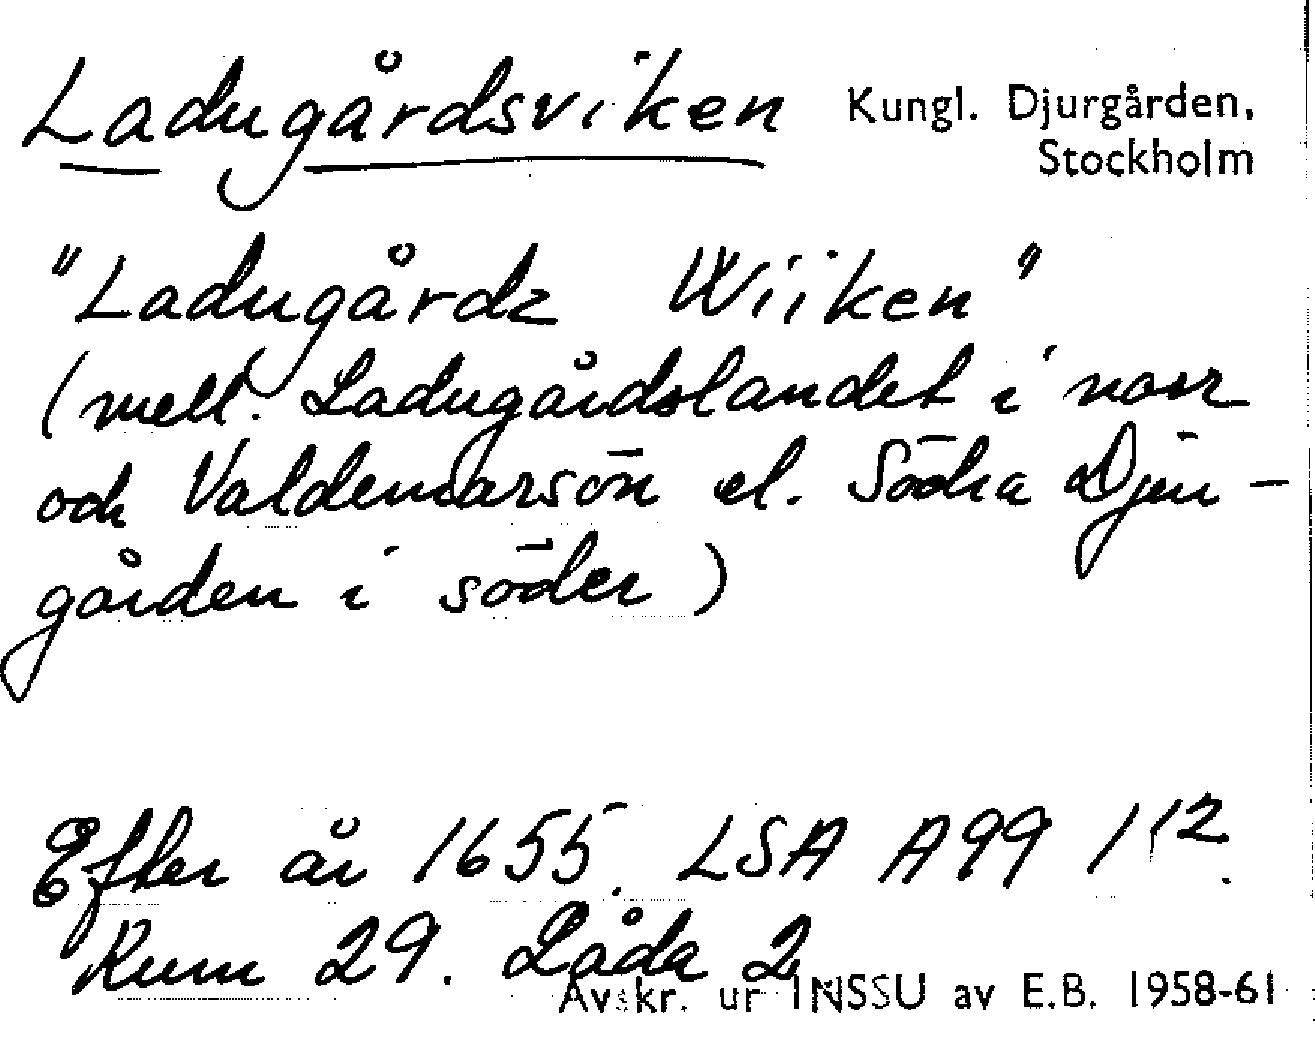 Ladugårdsviken Kungl. Djurgården,
Stockholm
"Ladugårdz Wiiken"
(mell. Ladugårdslandet i norr
och Valdemarsön el. Södra Djur-
gården i söder)
Efter år 1655. LSA A99 112.
Rum 29. Låda 2
Avskr. ur INSSU av E.B. 1958-61